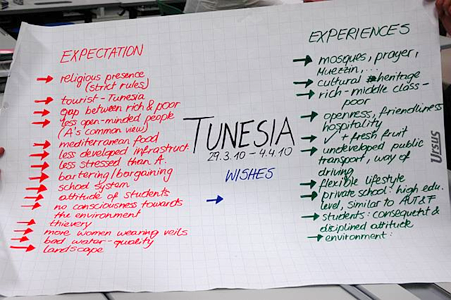 EXPECTATION
religious presence
(strict rules)
tourist - Tunesia
gap between rich & poor
less open-minded people
(A's common view)
mediterranean food
less developed infrastruct.
less stressed than A.
bartering/bargaining
school system
attitude of students
no consciousness towards
the environment
thievery
more women wearing veils
bad water-quality
landscape
TUNESIA
29.3.10 - 4.4.10
WISHES
EXPERIENCES
mosques, prayer,
Muezzin, ...
cultural heritage
rich - middle class -
poor
openness, friendliness
hospitality
fresh fruit
undeveloped public
transport, way of
driving
flexible lifestyle
private school: high edu.
level, similar to AUT & F
students: consequent &
disciplined attitude
environment:
Ursus